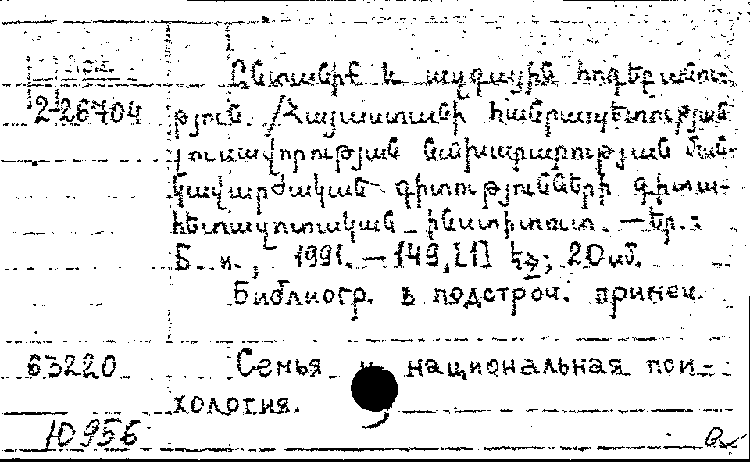 Арм.
2-26704
Ընտանիք և ազգային հոգեբանու-
թյուն. /Հայաստանի հանրապետության
լուսավորության նախարարության ման-
կավարժական գիտությունների գիտա-
հետազոտական ինստիտուտ. — Եր.:
Б. и., 1991. — 149, [1] էջ; 20 սմ.
Библиогр. в подстроч. примеч.
63220
Семья и национальная пси-
хология.
10956